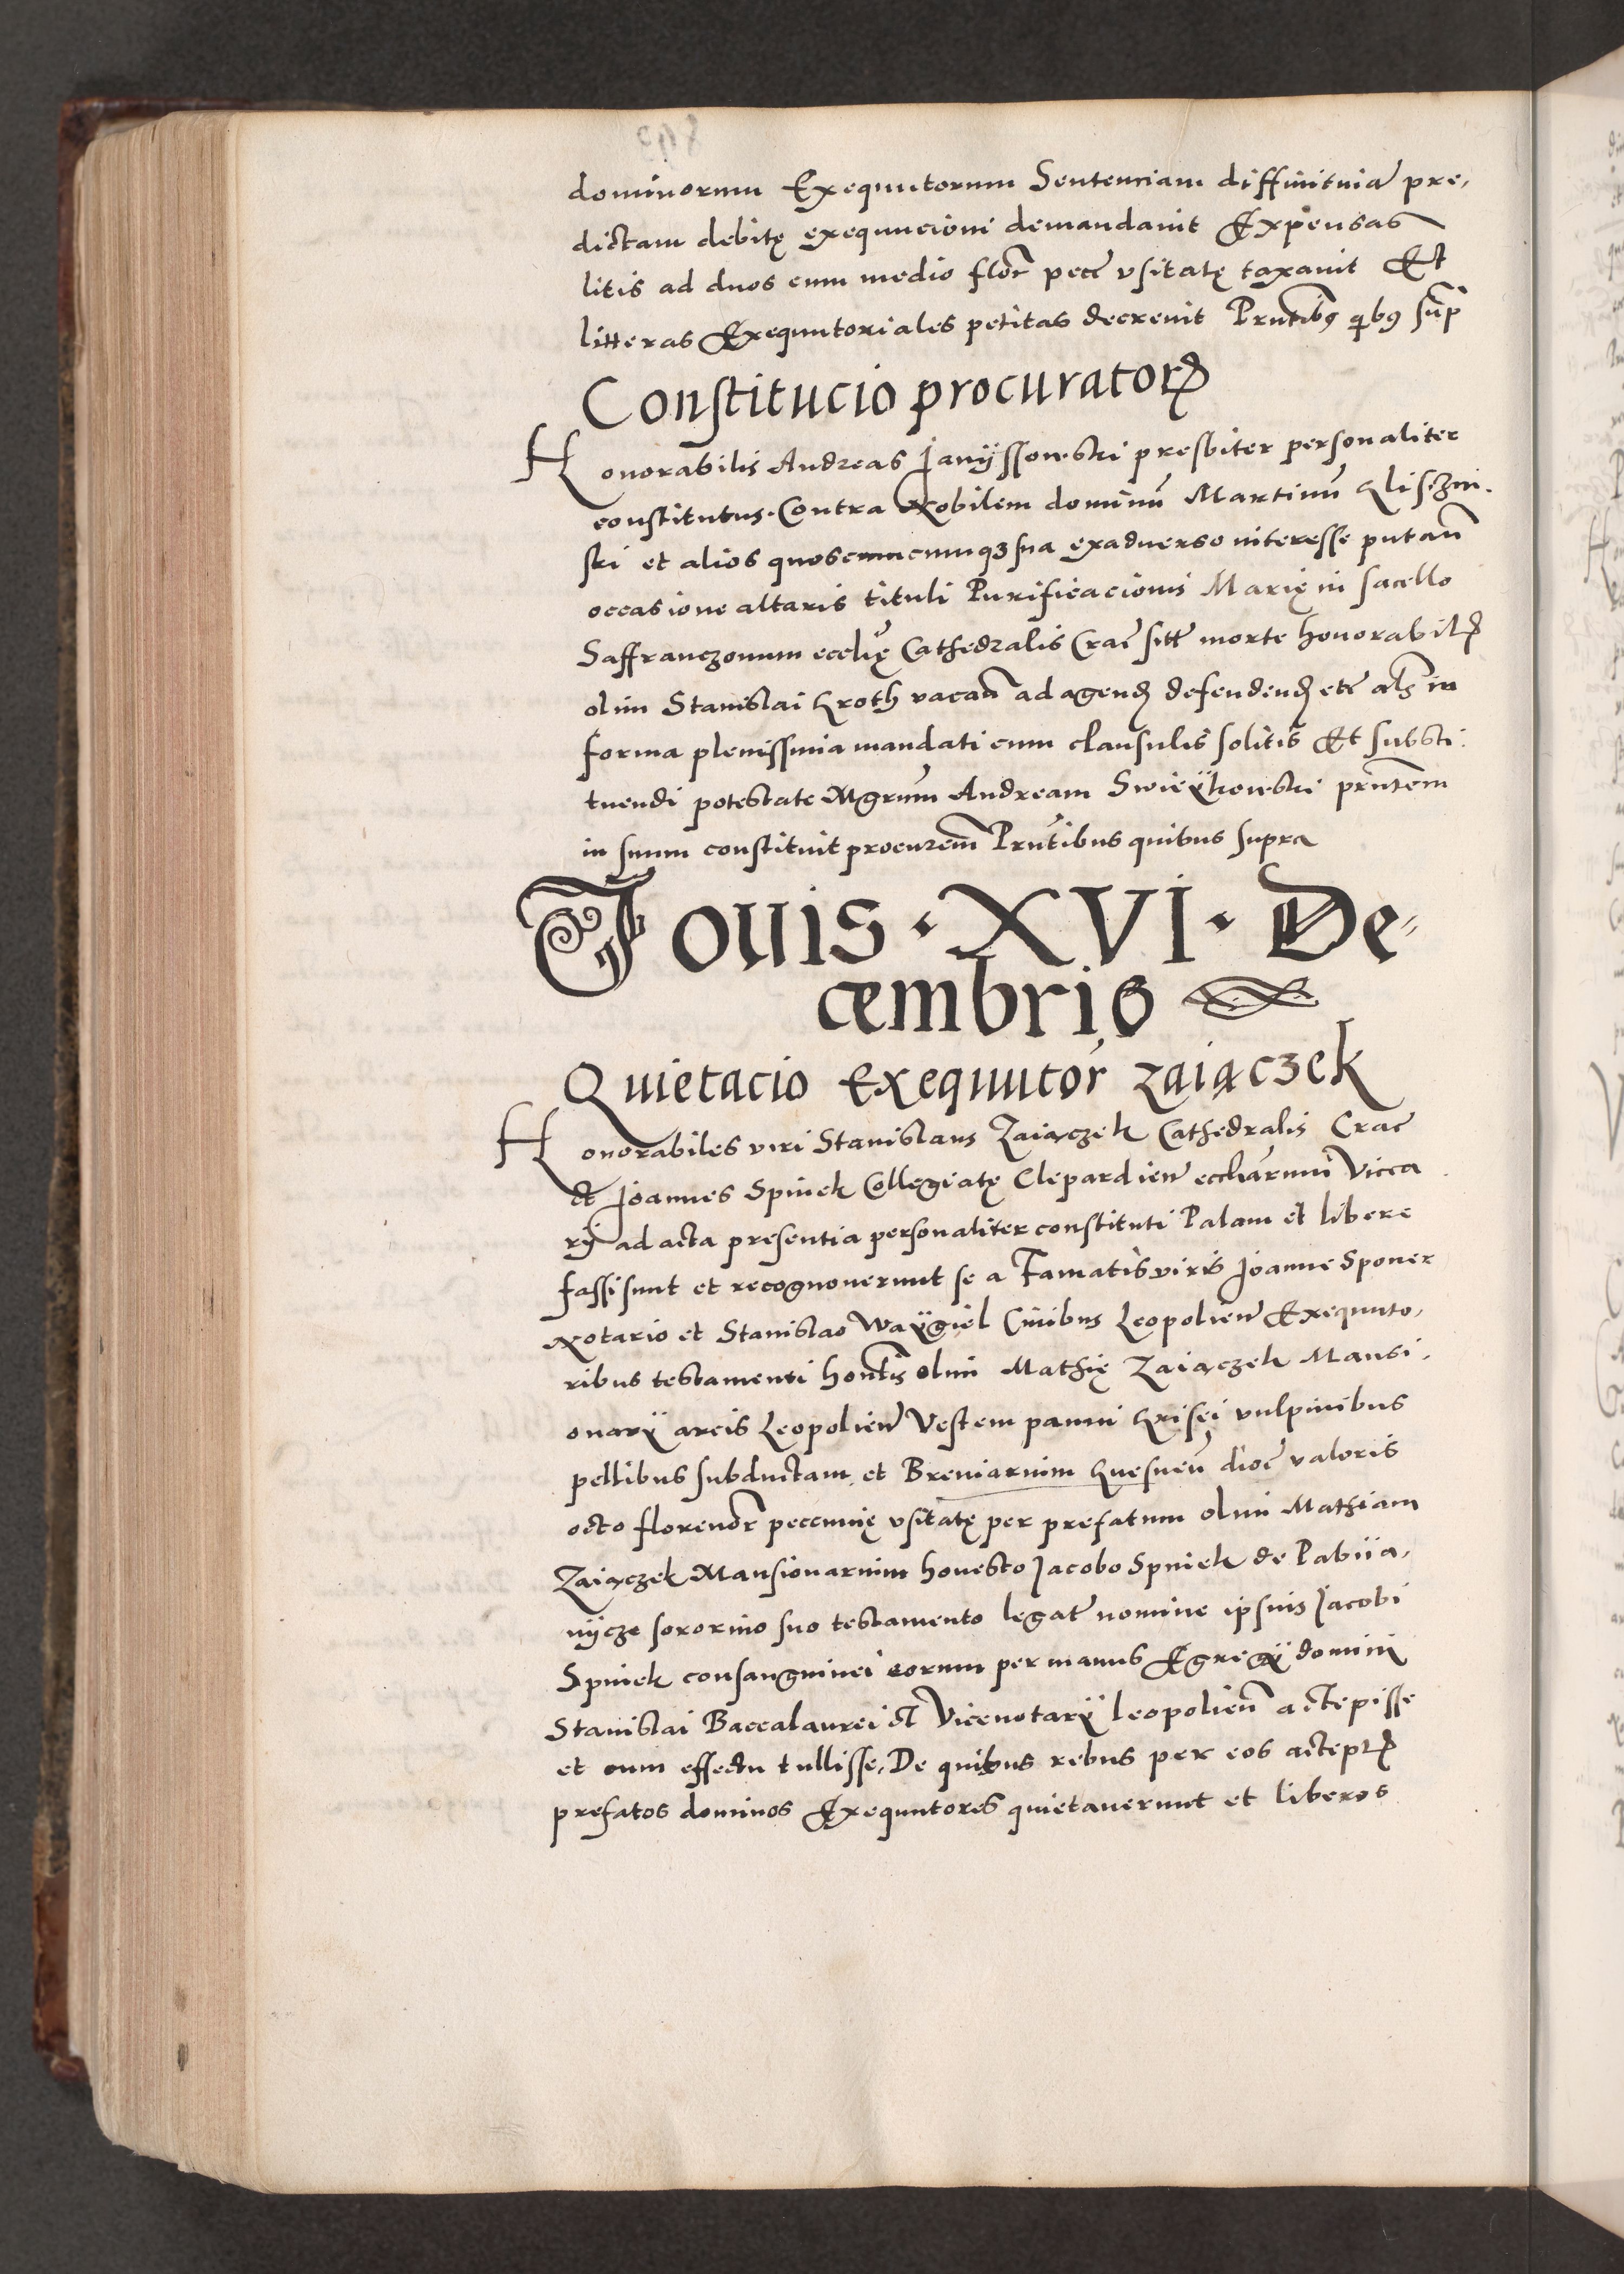 dominorum Exequutorum Sentenciam diffinitiuā pre,
dictam debitę exequucioni demandauit Expensas
litis ad duos cum medio flor̄ pecc̄ vsitatę taxauit Et
litteras Exequutoriales petitas decreuit Prn̄tibꝯ qibꝯ sup̄
Constitucio procuratorꝝ
Honorabilis Andreas Janÿssowski presbiter personaliter
constitutus. Contra Nobilem dominū Martinū Kliszni.
ski et alios quoscumcumqꝫ sua exaduerso interesse putan̄
occasione altaris tituli Purificacionis Marię in sacello
Saffranczonum eccl̄ię Cathedralis Crac̄ sitt̄ morte honorabil̄
olim Stanislai Kroth vacan̄ ad agend̄ defendend̄ etc̄ al̄s in
forma plenissima mandati cum clausulis solitis Et substi:
tuendi potestate Mgr̄um Andream Swieÿkowski prn̄tem
in suum constituit procur̄em Prn̄tibus quibus supra
Iouis · XVI · De=
cembris
Quietacio Exequutor̄ Zaiączek
Honorabiles viri Stanislaus Zaiączek Cathedralis Crac̄
et Joannes Spinek Collegiatę Clepardien̄ eccl̄iarum Vicca
rÿ ad acta presentia personaliter constituti Palam et libere
fassi sunt et recognouerunt se a Famatis viris Joanne Sponer
Notario et Stanislao Waÿgiel Ciuibus Leopolien̄ Exequuto,
ribus testamenti hon̄tis olim Mathię Zaiączek Mansi,
onarÿ arcis Leopolien̄ Vestem panni Krisei vulpinibus
pellibus subductam et Breuiarium Gnesnen̄ dioc̄ valoris
octo florenor̄ peccunię vsitatę per prefatum olim Mathiam
Zaiączek Mansionarium honesto Jacobo Spinek de Pabiia,
nÿcze sororino suo testamento legat̄ nomine ipsius Jacobi
Spinek consanguinei eorum per manus Egregÿ domini
Stanislai Baccalaurei et Vicenotarÿ leopolien̄ accepisse
et cum effectu tullisse, De quibus rebus per eos acceptꝭ
prefatos dominos Exequutores quietauerunt et liberos